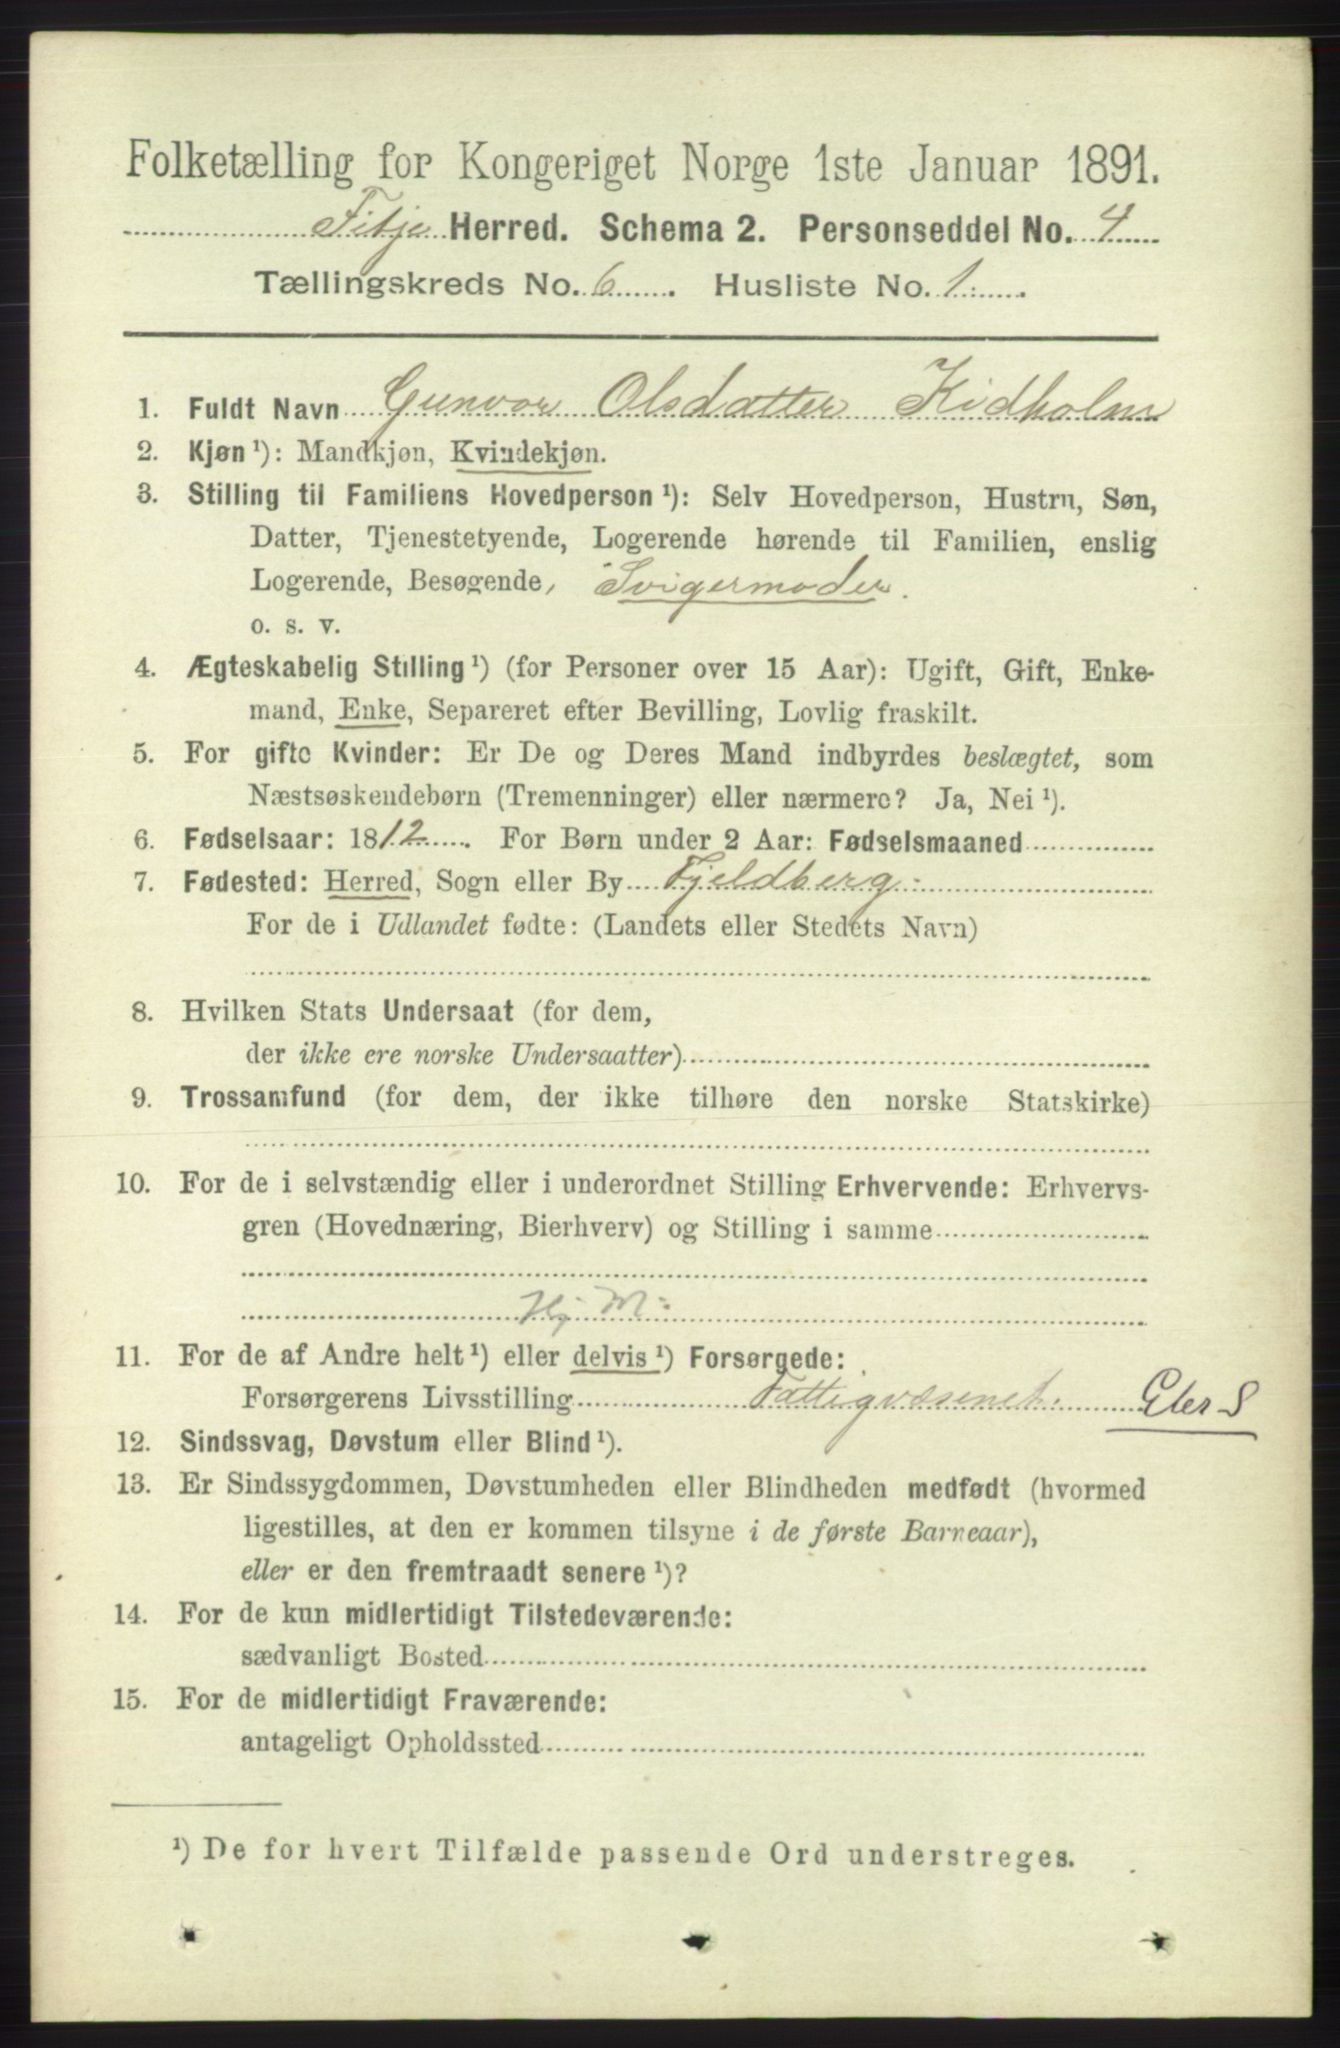 Folketælling for Kongeriget Norge 1ste Januar 1891.
Fitje Herred. Schema 2. Personseddel No. 4
Tællingskreds No. 6. Husliste No. 1.
1. Fuldt Navn Gunvor Olsdatter Kidholm
2. Kjøn ¹): Mandkjøn, Kvindekjøn.
3. Stilling til Familiens Hovedperson ¹): Selv Hovedperson, Hustru, Søn,
Datter, Tjenestetyende, Logerende hørende til Familien, enslig
Logerende, Besøgende, Svigermoder.
o. s. v.
4. Ægteskabelig Stilling ¹) (for Personer over 15 Aar): Ugift, Gift, Enke-
mand, Enke, Separeret efter Bevilling, Lovlig fraskilt.
5. For gifte Kvinder: Er De og Deres Mand indbyrdes beslægtet, som
Næstsøskendebørn (Tremenninger) eller nærmere? Ja, Nei ¹).
6. Fødselsaar: 1812. For Børn under 2 Aar: Fødselsmaaned
7. Fødested: Herred, Sogn eller By Fjeldberg
For de i Udlandet fødte: (Landets eller Stedets Navn)
8. Hvilken Stats Undersaat (for dem,
der ikke ere norske Undersaatter)
9. Trossamfund (for dem, der ikke tilhøre den norske Statskirke)
10. For de i selvstændig eller i underordnet Stilling Erhvervende: Erhvervs-
gren (Hovednæring, Bierhverv) og Stilling i samme
Hj M:
11. For de af Andre helt ¹) eller delvis ¹) Forsørgede:
Forsørgerens Livsstilling Fattigvæsenet.
12. Sindssvag, Døvstum eller Blind ¹).
13. Er Sindssygdommen, Døvstumheden eller Blindheden medfødt (hvormed
ligestilles, at den er kommen tilsyne i de første Barneaar),
eller er den fremtraadt senere ¹)?
14. For de kun midlertidigt Tilstedeværende:
sædvanligt Bosted
15. For de midlertidigt Fraværende:
antageligt Opholdssted
¹) De for hvert Tilfælde passende Ord understreges.